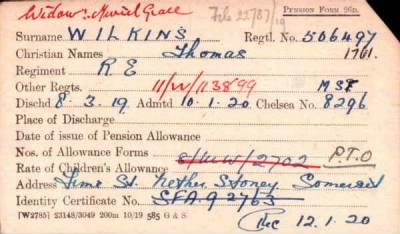 Widow: Muriel Grace File 22787/19 PENSION FORM 26D.
Surname WILKINS Regtl. No. 506497
Christian Names Thomas 1761.
Regiment R E
Other Regts. 11/W/113899 MST
Dischd 8.3.19. Admtd 10.1.20 Chelsea No. 8296
Place of Discharge
Date of issue of Pension Allowance
Nos. of Allowance Forms P.T.O
Rate of Children's Allowance
Address Lime St. Nether Stowey Somerset
Identity Certificate No. SFA.9 2763
[W2785] 23148/3049 200m 10/19 585 G & S 12.1.20